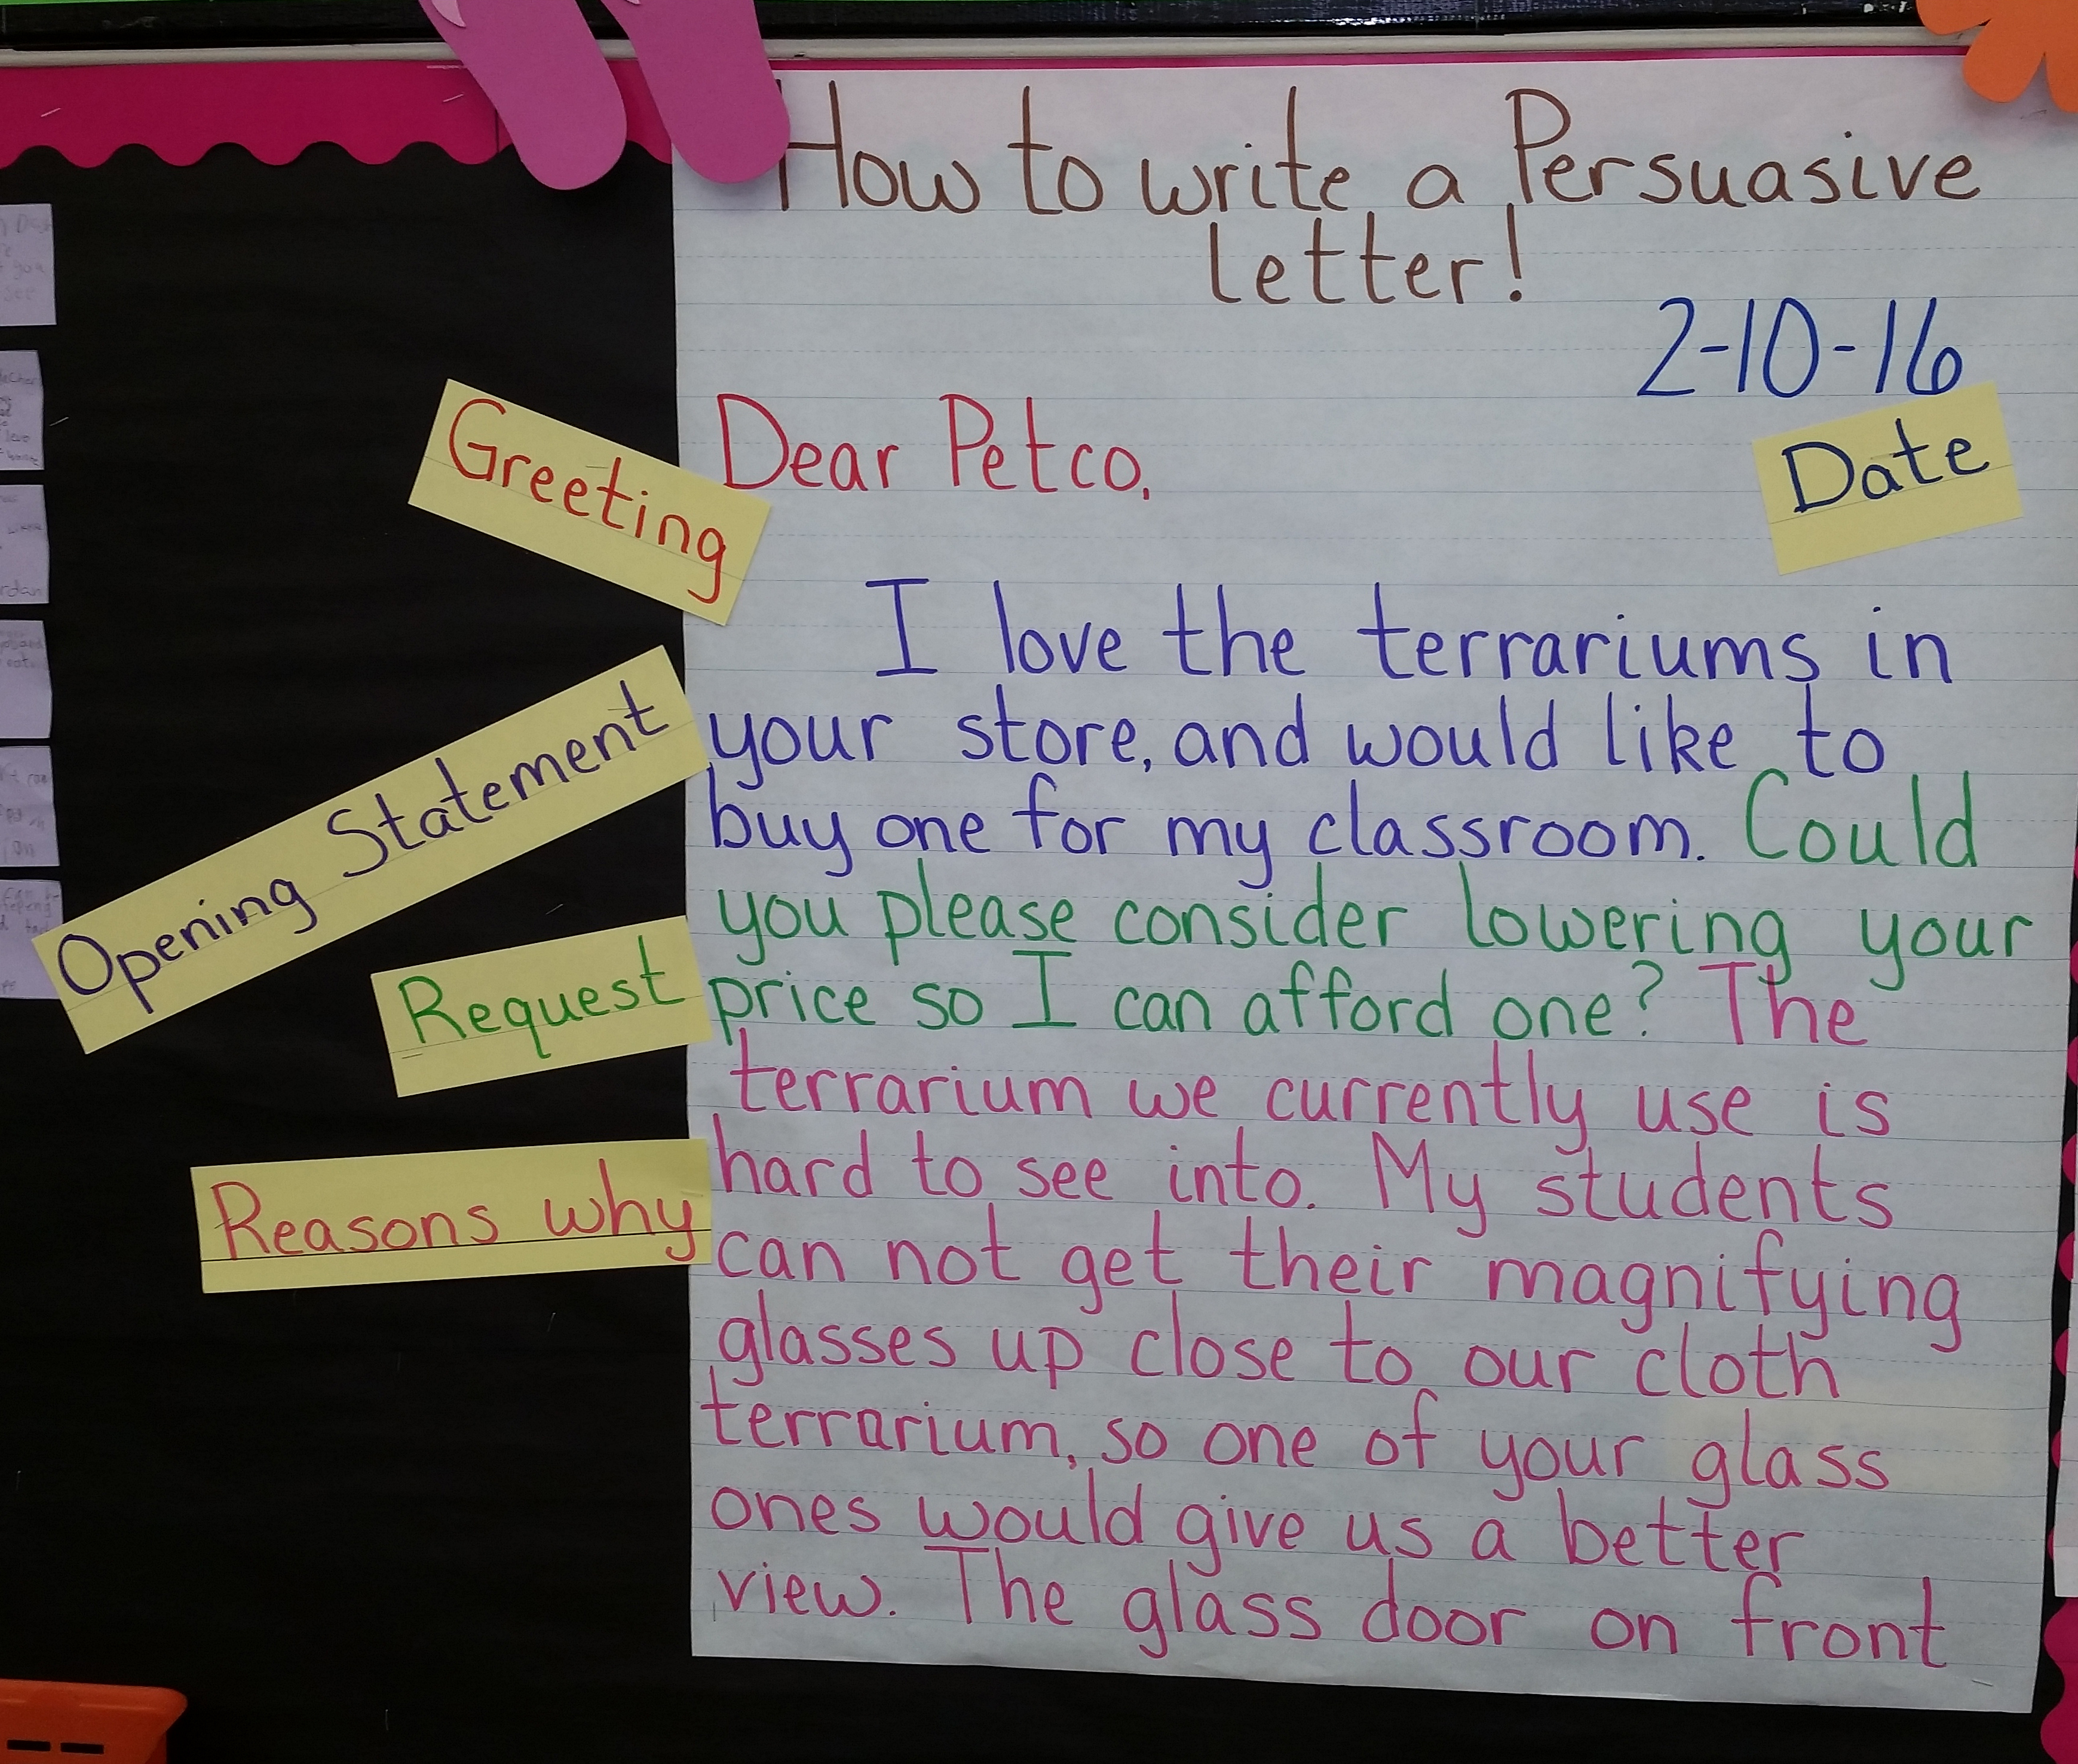 How to write a Persuasive
letter!
2-10-16
Date
Greeting
Dear Petco,
I love the terrariums in
Opening Statement
your store, and would like to
buy one for my classroom. Could
you please consider lowering your
Request
price so I can afford one? The
terrarium we currently use is
hard to see into. My students
Reasons why
can not get their magnifying
glasses up close to our cloth
terrarium, so one of your glass
ones would give us a better
view. The glass door on front